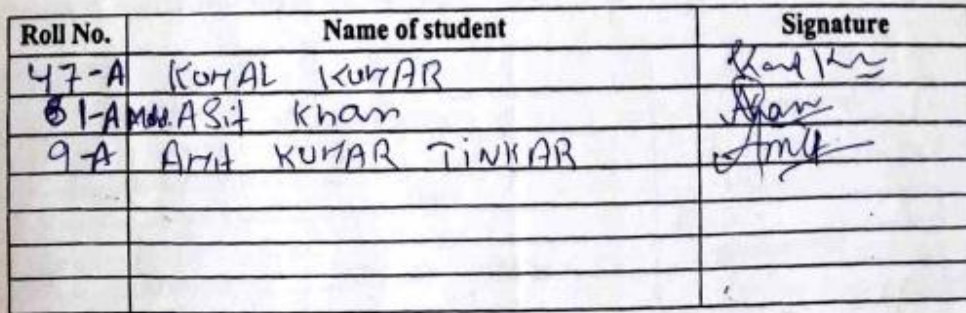 Roll No. Name of student Signature
47-A KUMAL KUMAR
61-A Md. ASif Khan
9-A Amit KUMAR TiNKAR Amit